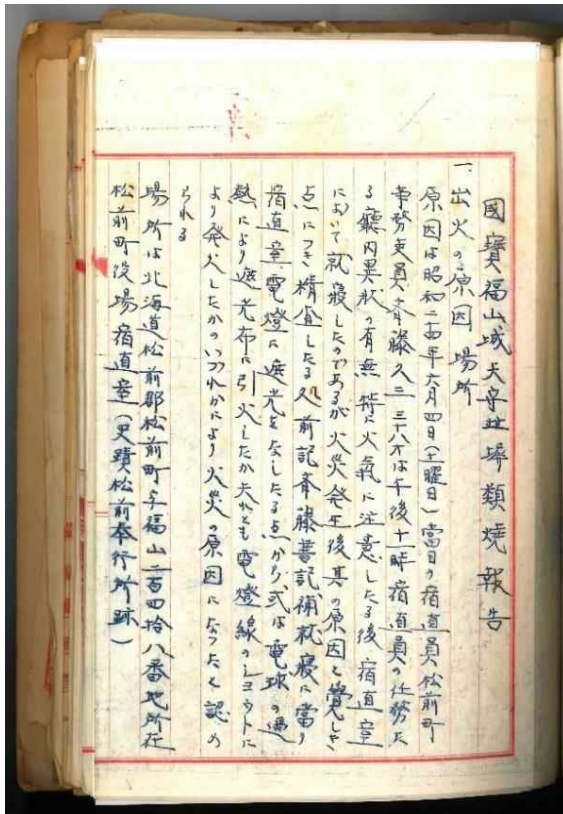 國寶福山城天守並塀類燒報告
一、出火の原因 場所
原因は昭和二十四年六月四日(土曜日)當日の宿直員松前町
事務吏員斉藤久二 三十八才は午後十一時 宿直員の任務た
る廳内異狀の有無 特に火氣に注意したる後 宿直室
において就寝したのであるが火災発生後其の原因と覚しき
点につき精査したる処 前記斉藤書記補就寝に當り
宿直室、電燈に遮光をなしたる点から、或は電球の過
熱により遮光布に引火したか夫れとも電燈線のショウトに
より発火したかのいづれかにより火災の原因になつたと認め
られる
場所は北海道松前郡松前町字福山二百四拾八番地所在
松前町役場 宿直室(史蹟松前奉行所跡)